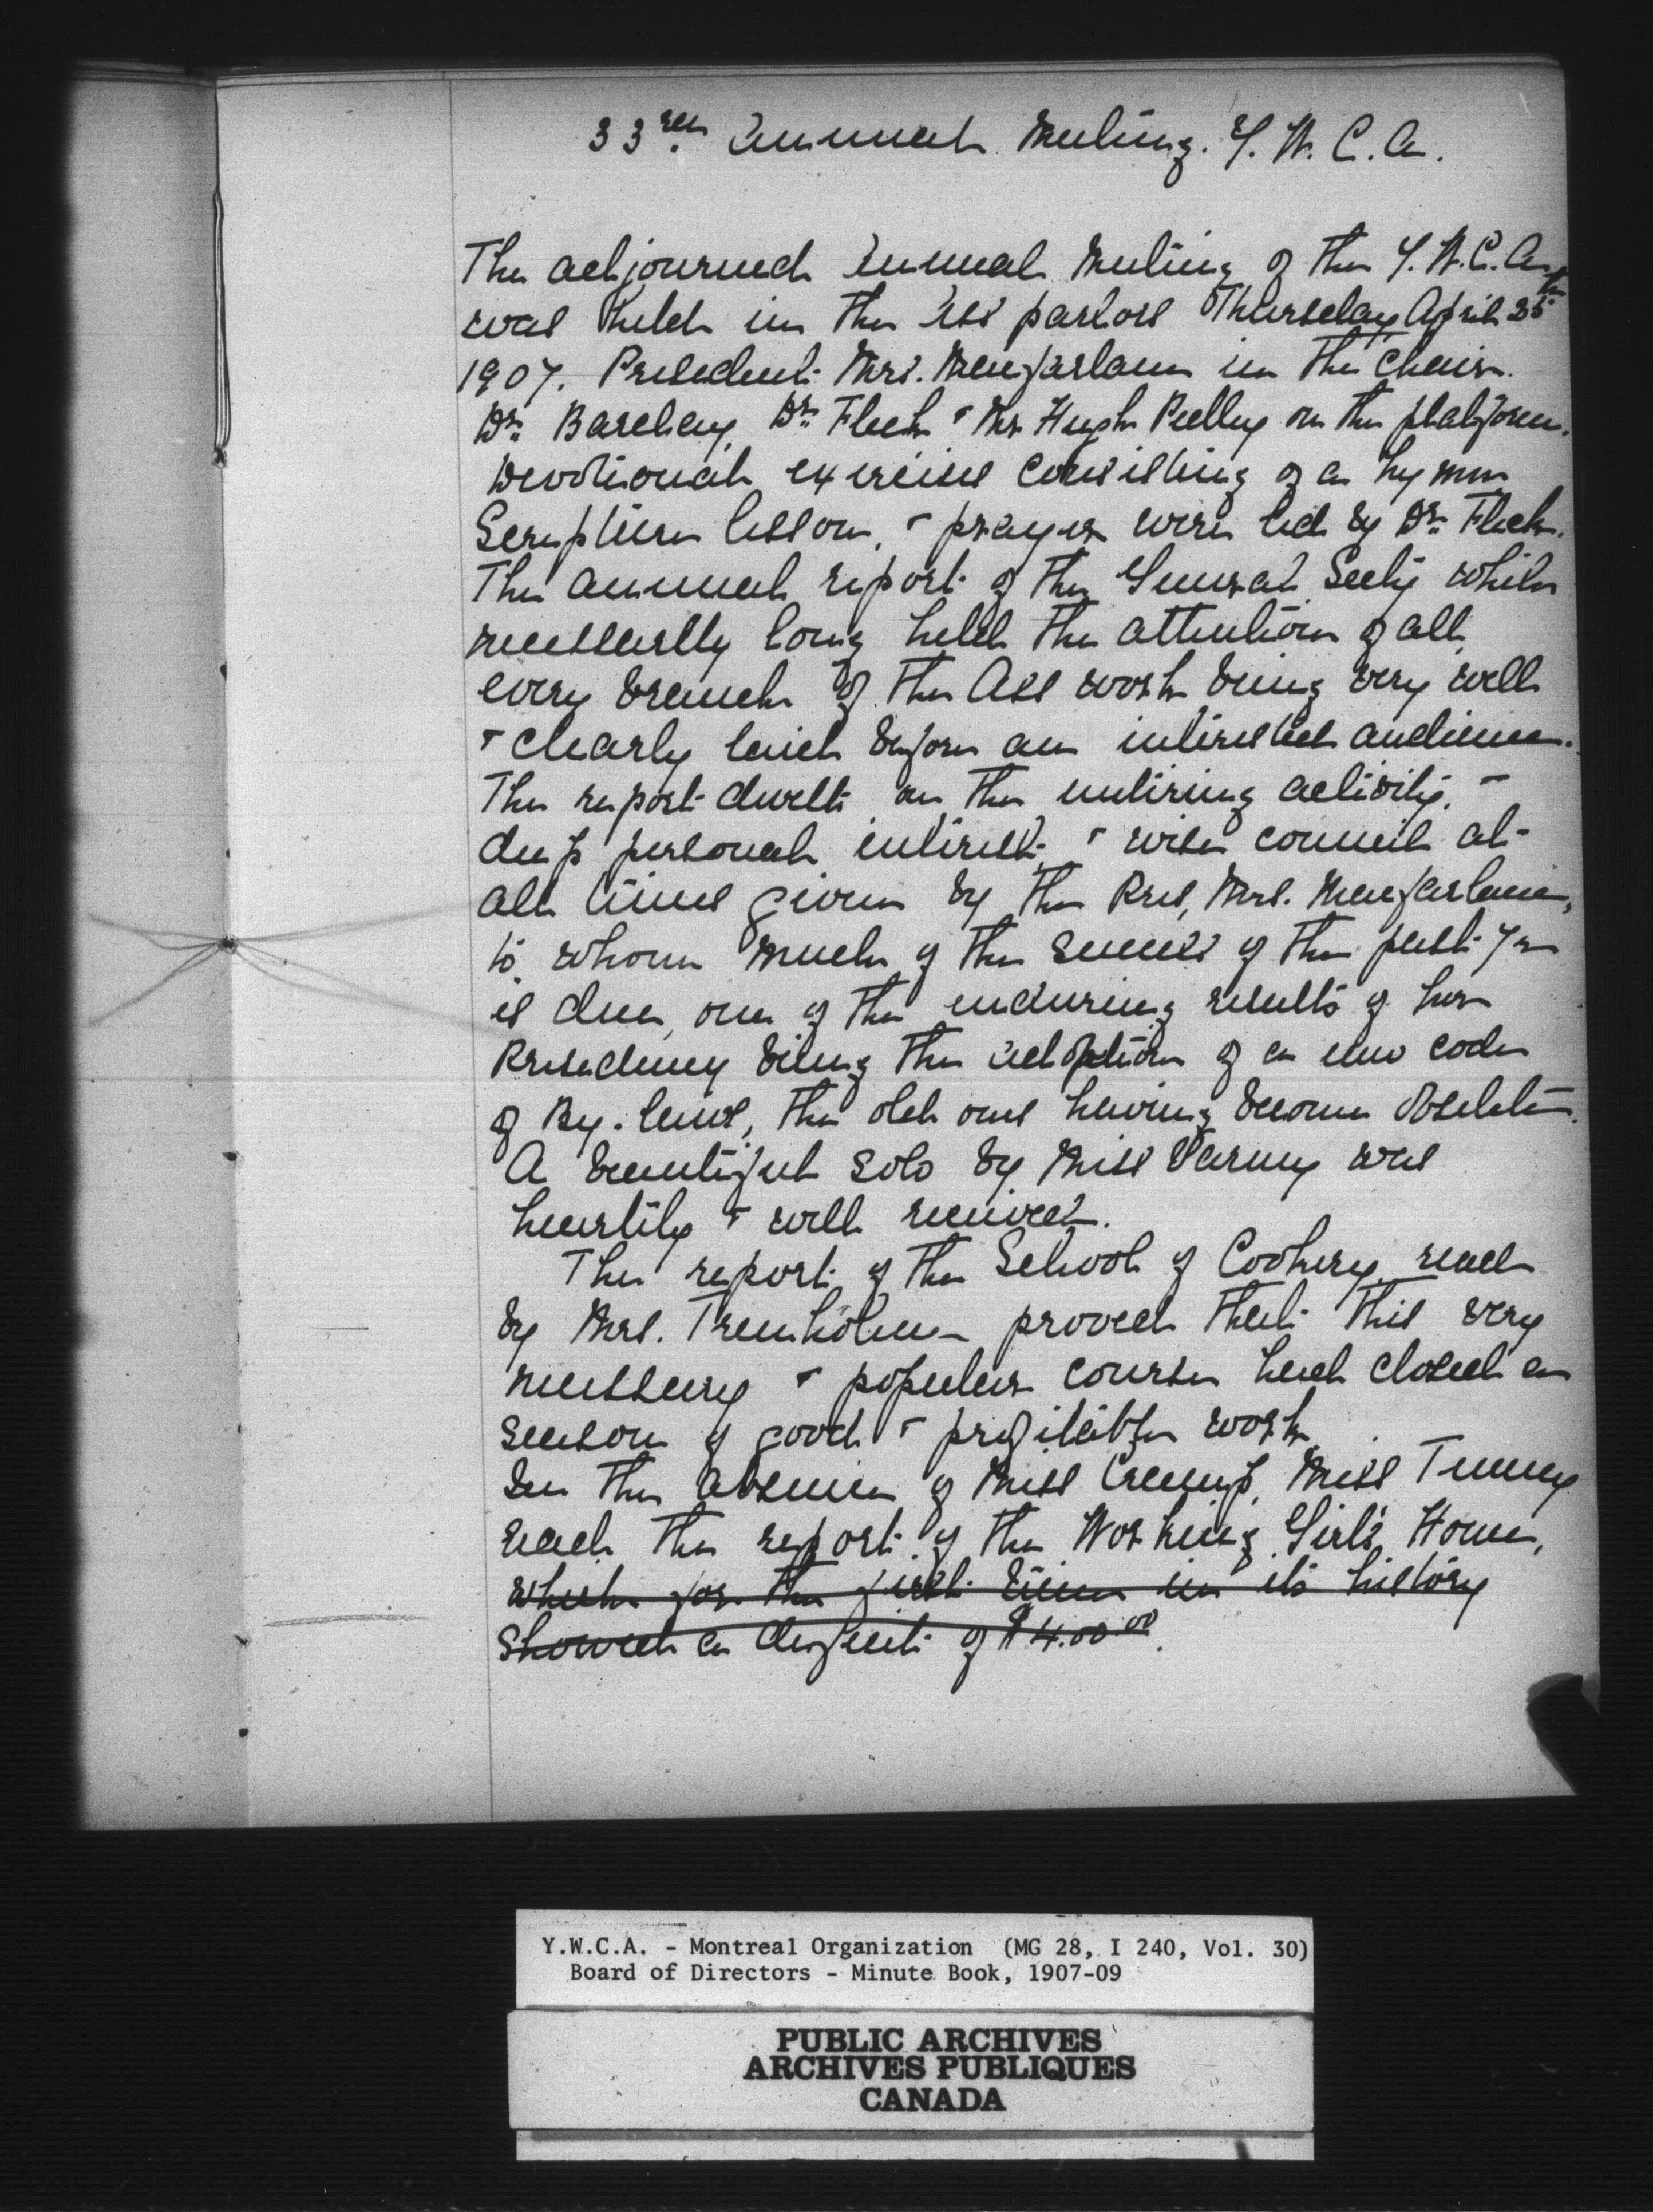 33rd Annual Meeting. Y. W. C. A.
The adjourned Annual Meeting of the Y. W. C. A.
was held in the Ass parlors Thursday April 25th
1907. President Mrs. Macfarlane in the Chair.
Dr. Barclay, Dr. Fleck & Mr Hugh on the platform.
Devotional exercises consisting of a hymn
Scripture lesson, & prayer were led by Dr. Fleck.
The annual report of the General Secty while
necessarlly long held the attention of all,
every branch of the Ass work being very well
& clearly laid before an interested audience.
The report dwelt on the untiring activity, -
deep personal interest, & wise council at
all times given by the Pres, Mrs. Macfarlane,
to whom much of the success of the past yr
is due, one of the enduring results of her
Presidency being the adoption of a new code
of By-laws, the old ones having become obselete.
A beautiful solo by Miss Varney was
heartily & well received.
The report of the School of Cookery read
by Mrs. Trenholme proved that this very
necessary & popular course had closed a
season of good & profitable work.
In the absence of Miss Cramp, Miss
read the report of the Working Girls Home,
which for the first time in its history
showed a deficit of $400.00.
Y.W.C.A. - Montreal Organization (MG 28, I 240, Vol. 30)
Board of Directors - Minute Book, 1907-09
PUBLIC ARCHIVES
ARCHIVES PUBLIQUES
CANADA